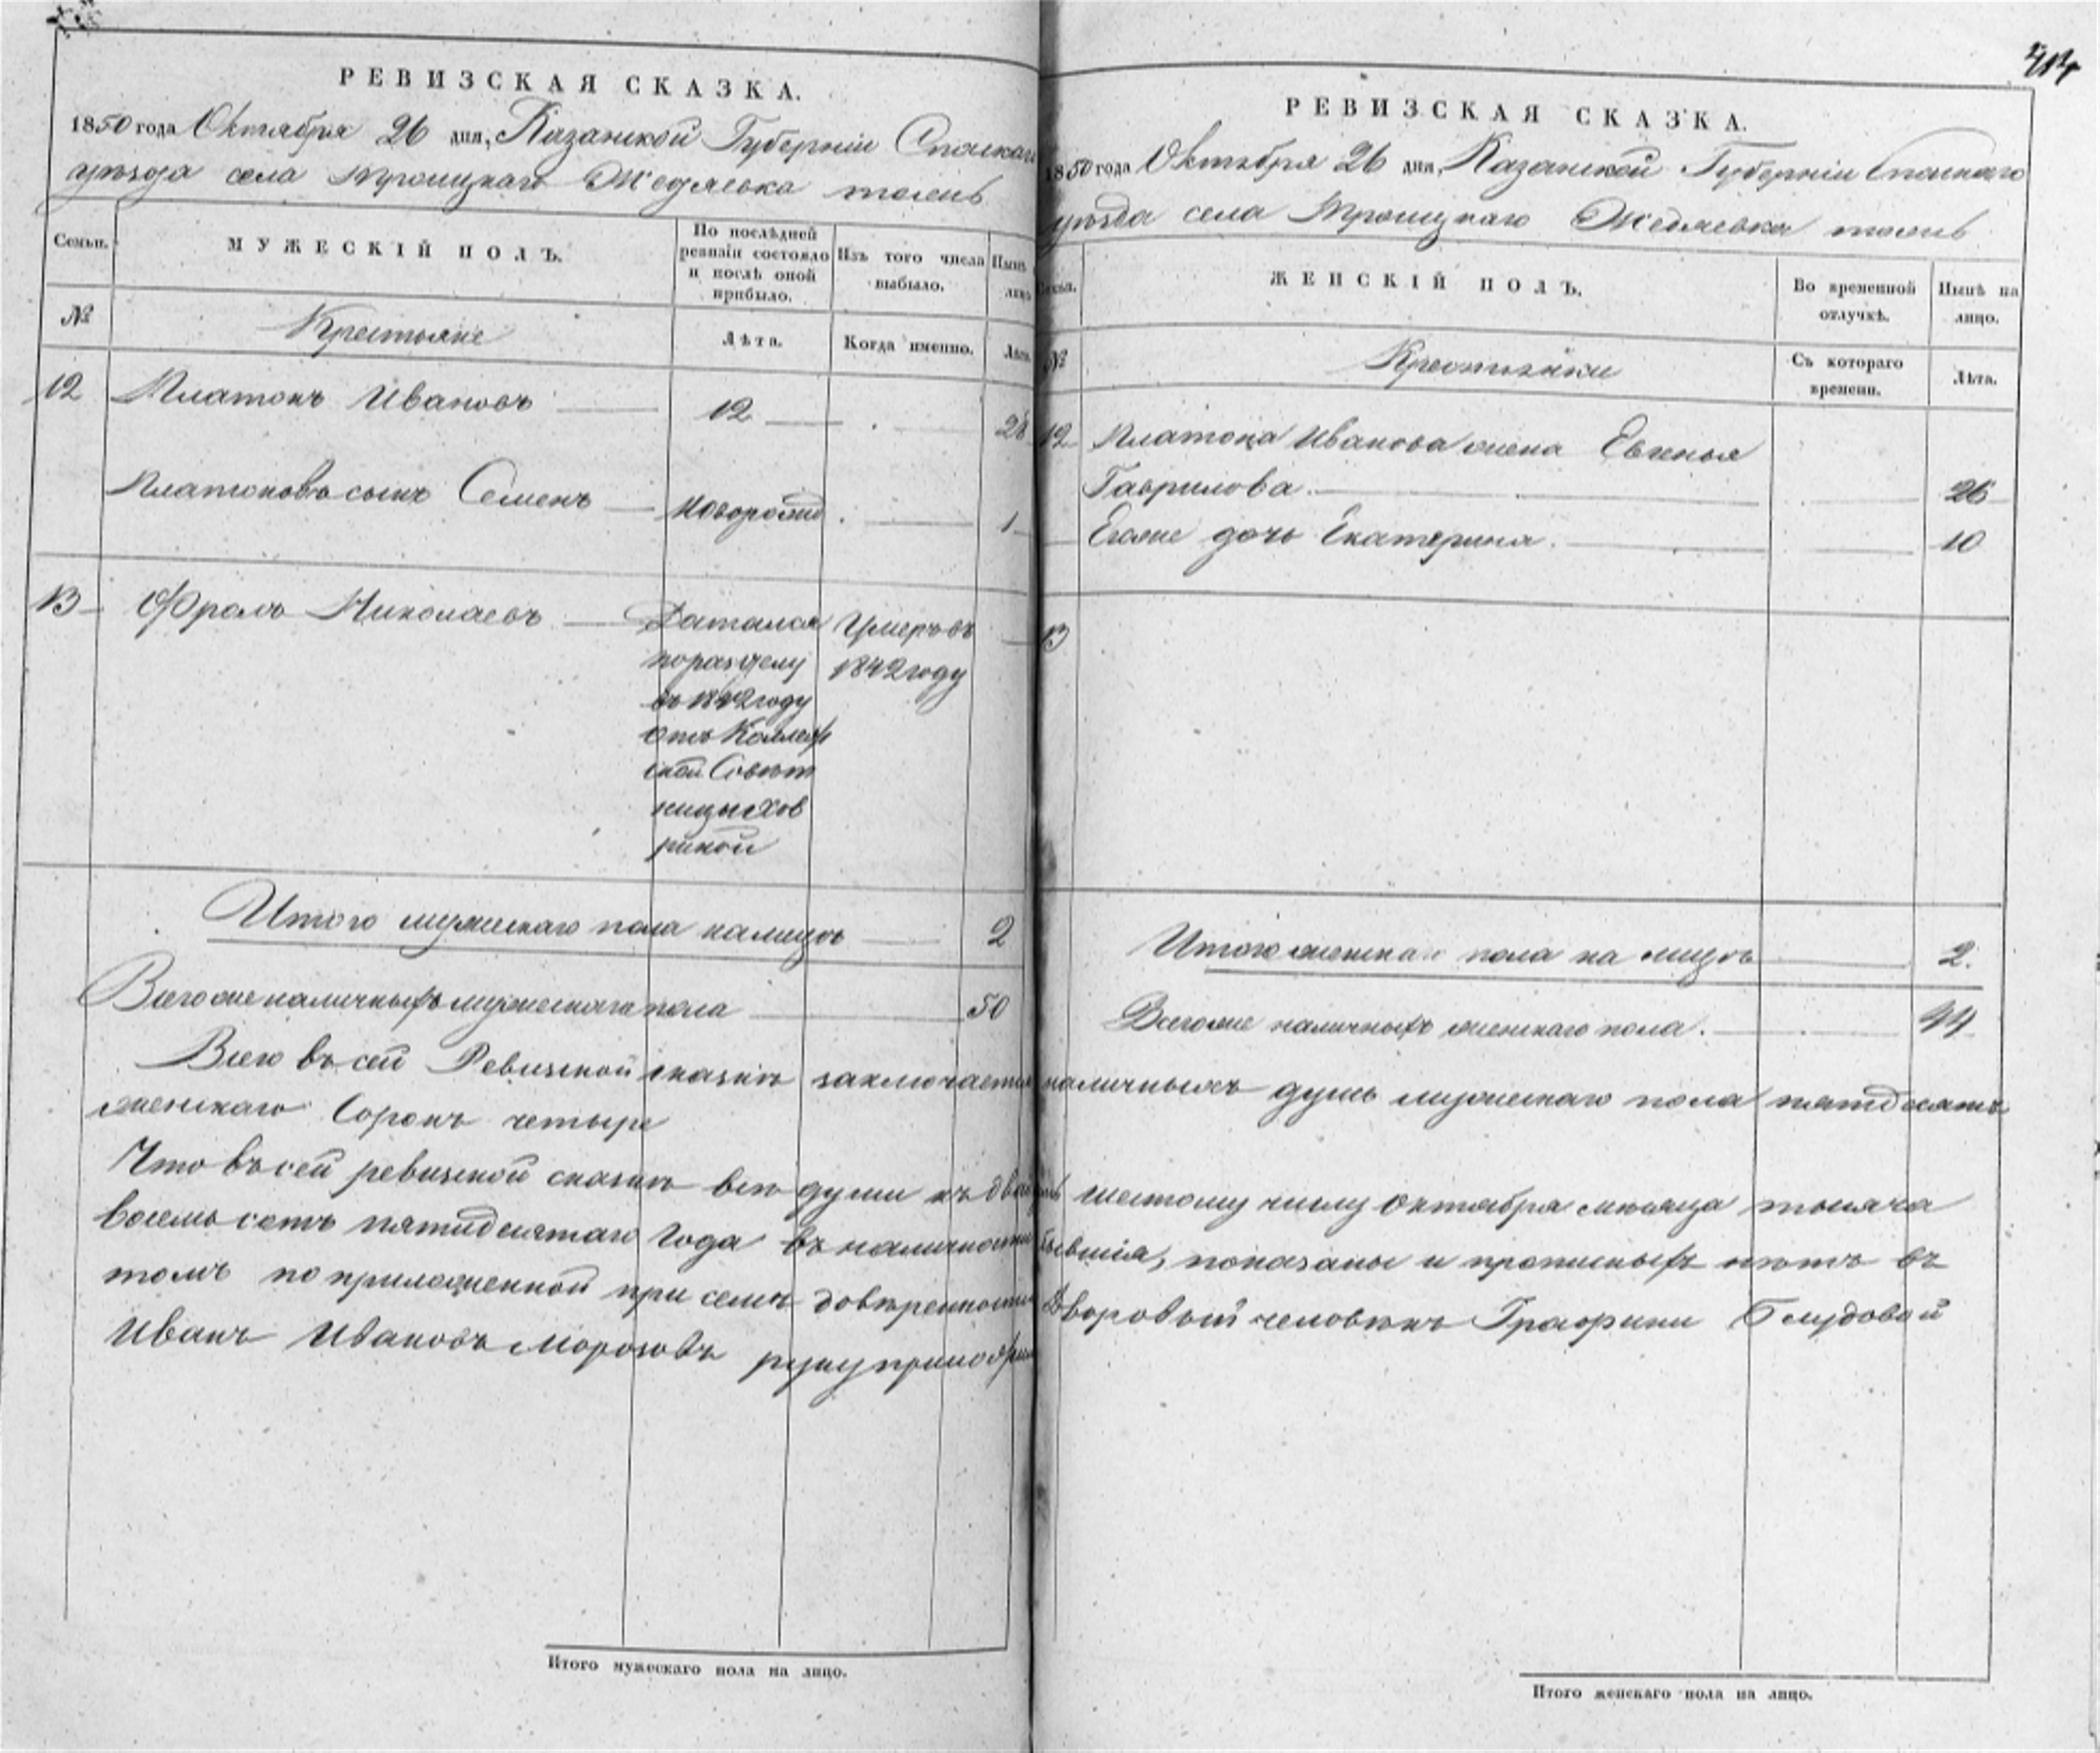 РЕВИЗСКАЯ СКАЗКА.
1850 года Октября 26 дня, Казанской Губернiи Спаскаго
уѣзда села Троицкаго Жедяевка тожъ
Семьи.
МУЖЕСКIЙ ПОЛЪ.
По послѣдней ревизiи состояло и послѣ оной прибыло.
Изъ того числа выбыло.
Нынѣ
лицо
№
Крестьяне
Лѣта.
Когда именно.
Лѣта.
12 Платонъ Ивановъ 12 28
Платоновъ сынъ Семенъ Новорожд 1
13 Фролъ Николаевъ Достался Умеръ въ
по раздѣлу 1842 году
въ 1842 году
отъ Коллеж
ской Совѣт
ницы Хов
риной
Итого мужескаго пола налицо 2
Всего же наличныхъ мужескаго пола 50
РЕВИЗСКАЯ СКАЗКА.
1850 года Октября 26 дня, Казанской Губернiи Спаскаго
уѣзда села Троицкаго Жедяевка тожъ
Семьи.
ЖЕНСКIЙ ПОЛЪ.
Во временной отлучкѣ.
Нынѣ на лицо.
№
Крестьянки
Съ котораго времени.
Лѣта.
12 Платона Иванова жена Евгенья
Гаврилова. 26
Егоже дочь Екатерина. 10
13
Итого женскаго пола на лицо 2.
Всегоже наличныхъ женскаго пола. 44
Всего въ сей Ревизской сказкѣ заключается наличныхъ душъ мужескаго пола пятдесятъ
женскаго Сорокъ четыре
Что въ сей ревизской сказкѣ всѣ души къ двадцать шестому числу Октября мѣсяца тысяча
восемьсотъ пятидесятаго года въ наличности бывшiя, показаны и прописныхъ нѣтъ въ
томъ по приложенной при семъ довѣренности Дворовый человѣкъ Графини Блудовой
Иванъ Ивановъ Морозовъ руку приложилъ
Итого мужескаго пола на лицо.
Итого женскаго пола на лицо.